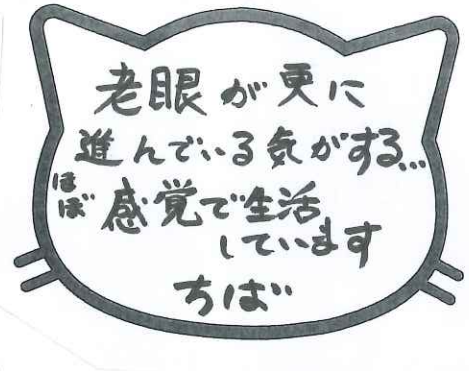 老眼が更に
進んでいる気がする...
ほぼ感覚で生活
しています
ちば